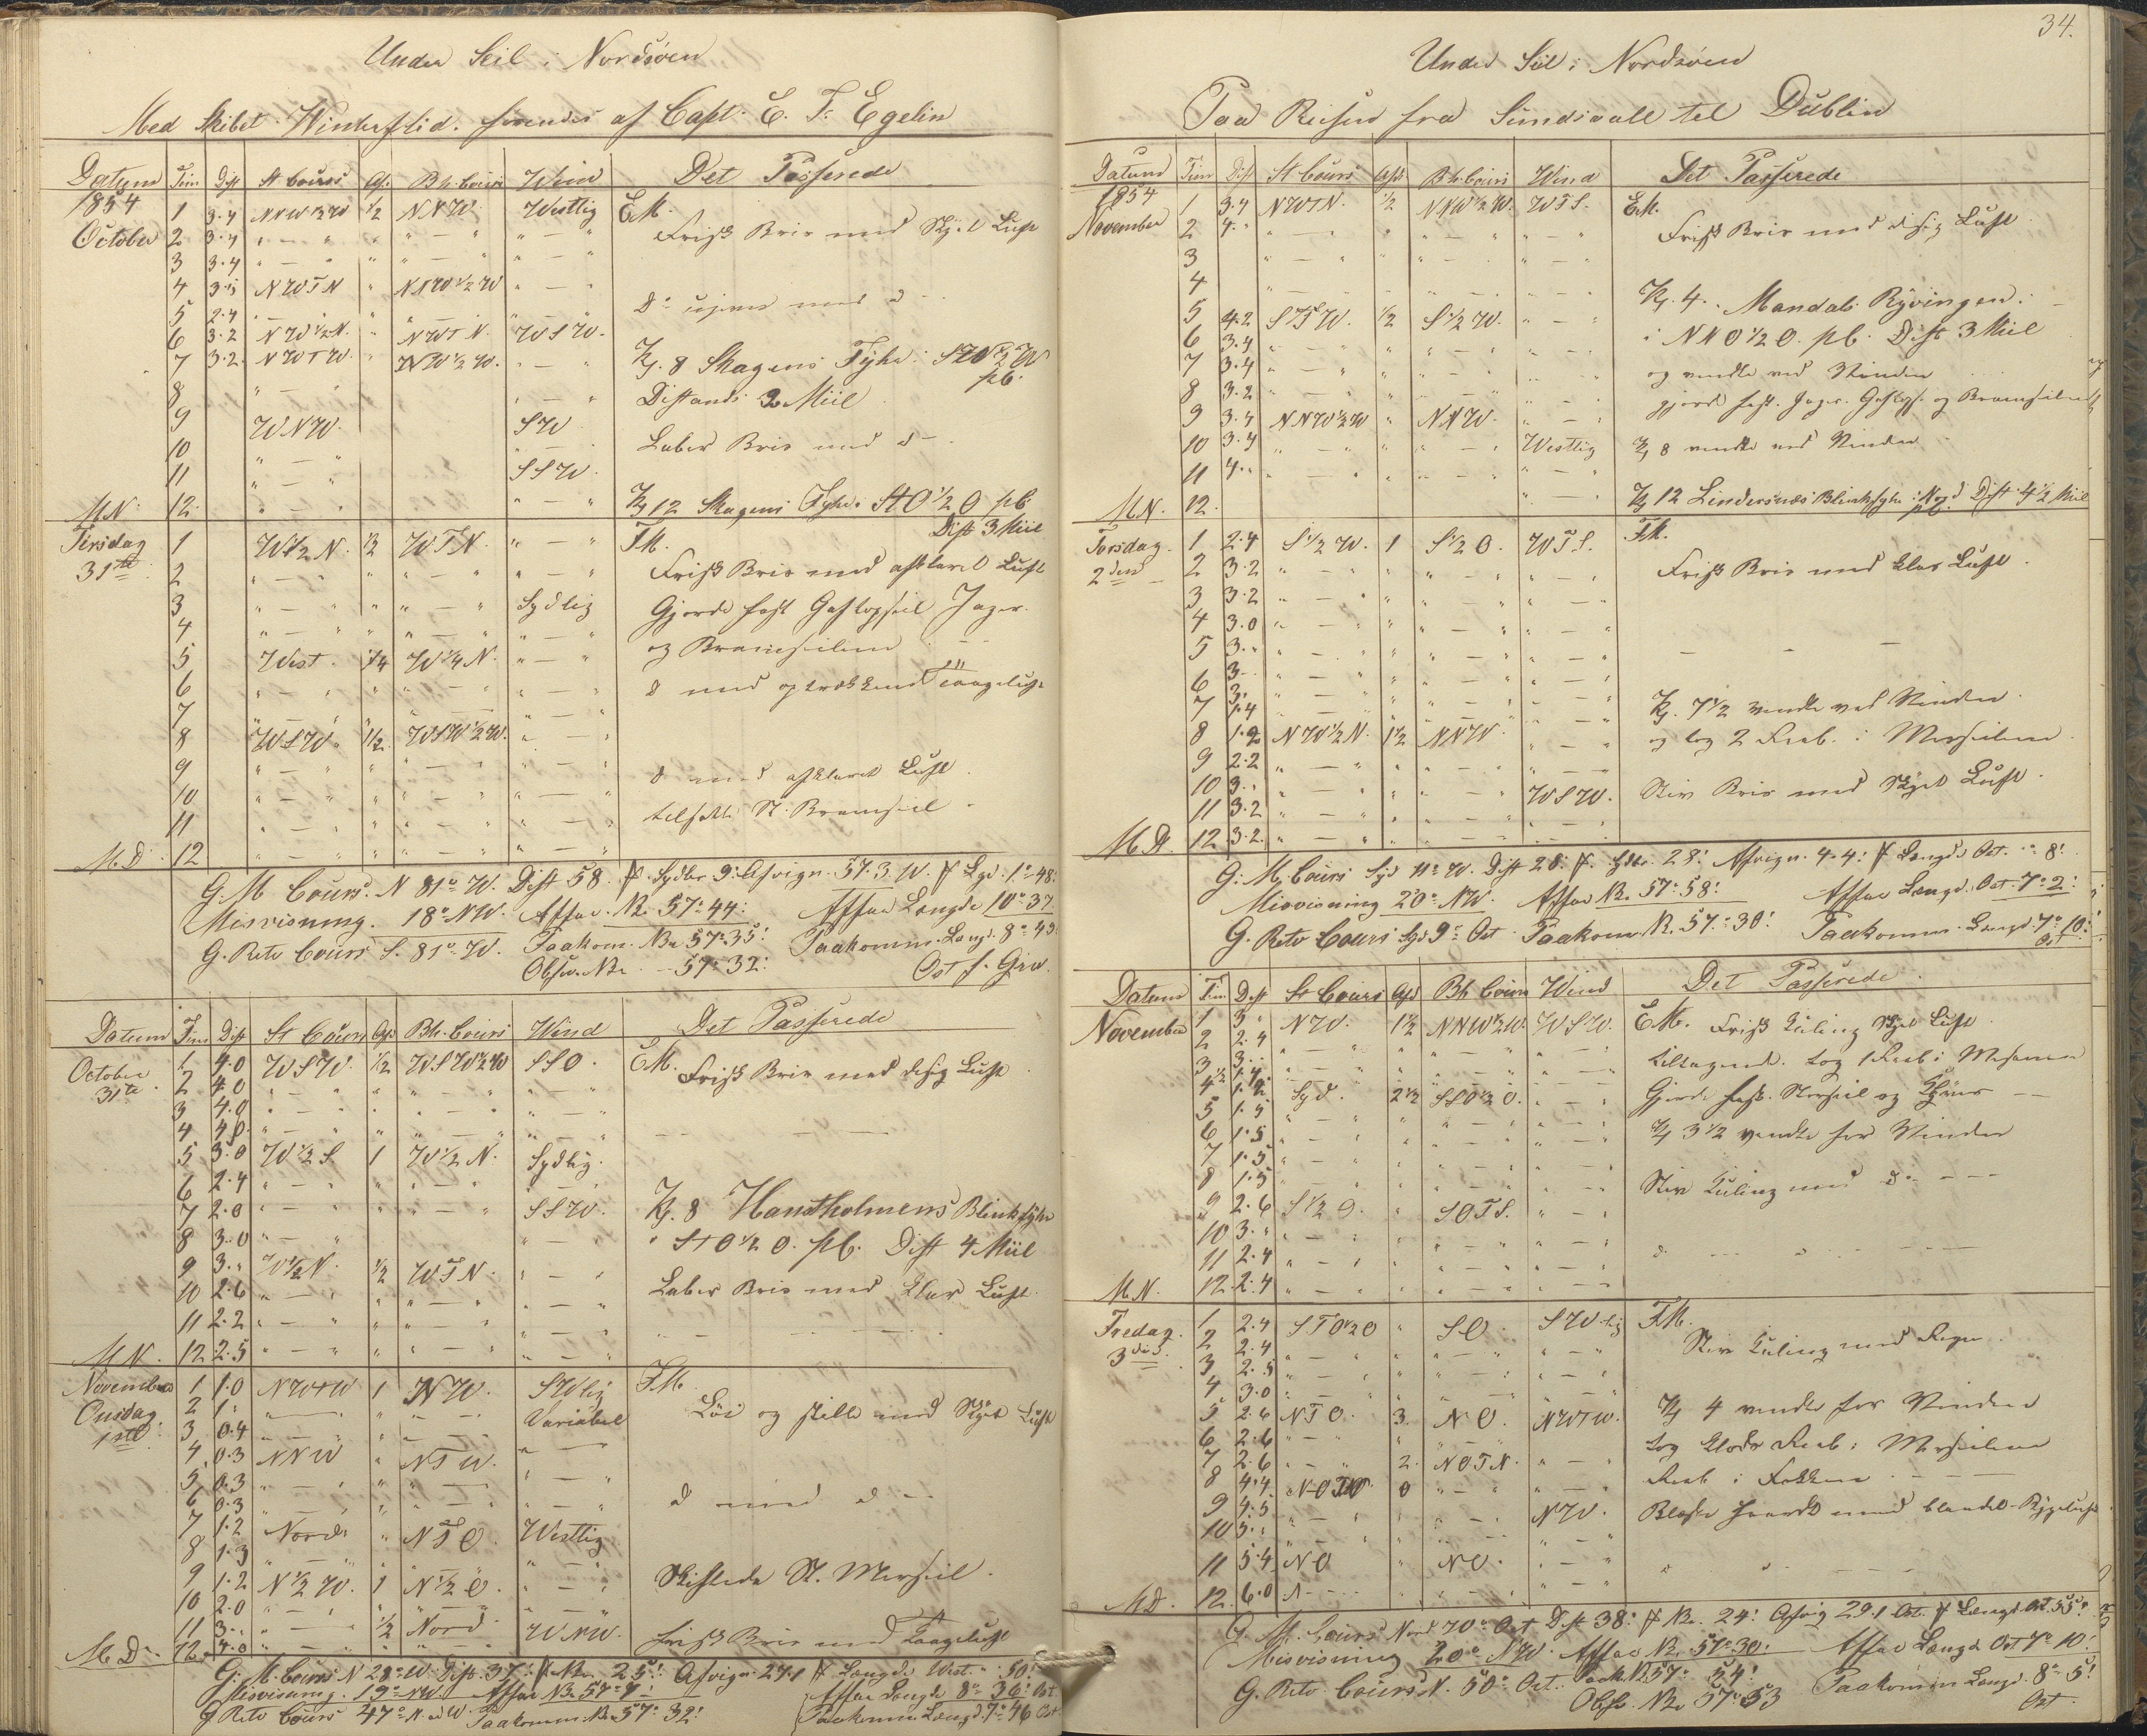 Under Seil i Nordsöen
Med Skibet Winterflid. förendes af Capt. E. F. Egelin
Datum Tim Dist St Cours Af. Bh. Cours Wind Det Passerede
1854 1 3.4 NNW1/2W 1/2 NNW. Westlig EM.
October 2 3.4 " — " " " — " " — " Frisk Bris med Skyet Luft
3 3.4 " — " " " — " " — "
4 NWTN " NNW1/2W " — "
5 2.4 " — " " " — " " — "
6 3.2 NW1/2N. " NWTN. WSW.
7 3.2. NWTW. " NW1/2W. " — " Kl. 8 Skagens Fyhr
8 " — " " — " Distands 2 Miil
9 WNW. SW
10 " — " " — " Laber Bris med d—
11 " — " SSW.
MN. 12. " — " " — " Kl 12 Skagens Fyhr StO1/2O pb.
Dist 3 Miil
Tirsdag 1 W1/2N. 1/2 WTN. " — " FM.
31te 2 " — " " " — " " — " Frisk Bris med afklaret Luft
3 " — " " " — " Sydlig Gjorde fast Gaftopseil Jager.
4 " — " " " — " " — " og Bramseilene
5 West. 1/4 W1/4N. " — "
6 " — " " " — " " — " d med optrækkende Taageluft
7 " — " " " — " " — "
8 WSW. 1/2. WSW1/2W. " — "
9 " — " " " — " " — " d med afklaret Luft
10 " — " " " — " " — "
11 " — " " " — " " — " tilsatte St. Bramseil.
M.D. 12 " — " " " — " " — "
G. M Cours. N 81° W. Dist 58. Sydbr 9: Afvign. 57.3. W. Lgd. 1°48:
Misvisning. 18° NW. Affar. Br. 57°44: Affar Længde 10°37
G. Retv Cours S. 81° W. Paakom. Br. 57°35: Paakomm. Længd. 8°49:
Obser. Br. 57°32: Ost f. Grw.
Datum Tim Dist St Cours Afd Bh. Cours Wind Det Passerede
October 1 4.0 WSW. 1/2 WSW1/2W SSO. EM. Frisk Bris med disig Luft
31te 2 4.0 " — " " " — " " — "
3 4.0 " — " " " — " " — "
4 4.0. " — " " " — " " — "
5 3.0 W1/2S 1 W1/2N. Sydlig.
6 2.4 " — " " " — " " — "
7 2.0 " — " " " — " SSW. Kl. 8 Hanstholmens Blinkfyhr
8 3.0 " — " " — " i StO1/2O. pb. Dist 4 Miil
9 3." W1/2N. 1/2 WTN. " — "
10 2.6 " — " " " — " " — " Laber Bris med klar Luft.
11 2.2 " — " " " — " " — "
MN. 12 2.5 " — " " " — " " — "
November 1 1.0 NWtW 1 NW. SWlig FM.
Onsdag 2 1." " — " " " — " Variabel Löi og stille med Skyet Luft
1ste 3 0.4 " — " " " — "
4 0.3 NNW " NTW. " — "
5 0.3 " — " " " — " " — "
6 0.3 " — " " " — " " — " d med d —
7 1.2 Nord. " NTO. Westlig
8 1.3 " — " " — " " — "
9 1.2 N1/2W. 1 N1/2O. " — " Skiftede St. Merseil.
10 2.0 " — " " — " " — "
11 3." " — " 1/2 Nord WNW.
M.D. 12. 4.0 " — " " " — " " — " Frisk Bris med Taageluft
G. M. Cours N 28° W. Dist. 37. Br. 25': Afvign 27.1 Længde West. " 50'
Misvisning. 19° NW Affar Br. 57°7' Affar Længde 8°36' Ost
G Retv Cours 47° N. W. Paakomm. Br. 57°32' Paakomm. Længd. 7°46 Ost
34.
Under Seil i Nordsöen
Paa Reisen fra Sundsvall til Dublin
Datum Tim Dist St Cours Afd Bh Cours Wind Det Passerede
1854 1 3.4 NWTN. 1/2 NNW1/2W. WTS. EM.
November 2 4." " — " " " — " " " Frisk Bris med disig Luft
3 " — " " " — " " — "
4 " — " " — " " — " Kl. 4. Mandals Ryvingen:
5 4.2 STW. 1/2 S1/2W. " — " i NNO1/2O. pb. Dist 3 Miil
6 3.4 " — " " " — " " — "
7 3.4 " — " " " — " " — " og vendte ved Vinden
8 3.2 " — " " " — " " — " gjorde fast. Jager. Gaftops. og Bramseilene
9 3.4 NNW1/2W " NNW. " — "
10 3.4 " — " " " — " Westlig Kl 8 vendte ved Vinden
11 4." " — " " " — " " — "
M.N. 12. " — " Kl 12 Lindersnæs Blinkfyhr Dist 4 1/2 Miil
Torsdag. 1 2.4 S1/2W. 1 S1/2O. WTS. FM.
2den 2 3.2 " — " " " — " " — " Frisk Bris med klar Luft.
3 3.2 " — " " " — " " — "
4 3.0 " — " " " — " " — "
5 3." " — " " " — " " — "
6 3— " — " " " — " " — "
7 1.4 " — " " " — " " — " Kl. 7 1/2 vendte ved Vinden
8 1.2 NW1/2N. 1 1/2 NNW. " — " og tog 2 Reeb. i Merseilene.
9 2.2 " — " " " — " " — "
10 3." " — " " " — " WSW. Stiv Bris med Skyet Luft.
11 3.2 " — " " " — " " — "
M.D. 12 3.2. " — " " " — " " — "
G. M. Cours Syd 11° W. Dist 28: Sydbr. 28: Afvign. 4.4: Længde Ost. " 8:
Misvisning 20° NW. Affar Br. 57°58: Affar Længd. Ost. 7°2:
G. Retv Cours Syd 9° Ost Paakom Br. 57°30: Paakomm. Længd. 7°10: Ost
Datum Tim Dist St Cours Afd Bh Cours Wind Det Passerede
November 1 3 " NW. 1 1/2 NNW1/2W. WSW. EM. Frisk Kuling Skyet Luft
2 2.4 " — " " " — " " — "
3 3." " — " " " — " " — " tiltagende. tog 1 Reeb i Mesanen
4 Syd. 2 1/2 SSO1/2O. " — " Gjorde fast. Storseil og Klyver
5 1.5 " — " " " — " " — "
6 1.5 " — " " " — " " — " Kl 3 1/2 vendte for Vinden
7 1.5 " — " " " — " " — "
8 1.5 " — " " " — " " — " Stiv Kuling med d. — —
9 2.6 S1/2O. " SOTS. " — "
10 3." " — " " " — " " — "
11 2.4 " — " " " — " " — "
M.N. 12. 2.4 " — " " " — " " — "
Fredag. 1 2.4 STO1/2O " SO. SWlig FM.
3die 2 2.4 " — " " " — " " — " Stiv Kuling med Regn
3 2.5 " — " " " — " " — "
4 3.0 " — " " " — " " — "
5 2.6 NTO. 3. NO. NWTW. Kl 4 vendte for Vinden
6 2.6 " — " " " — " tog Klods Reeb i Merseilene
7 2.6 " — " 2. NOTN. " — "
8 4.4 0 " — " " — " Reeb i Fokken
9 4.5 " — " " — " NW. Blæste haardt med blandet Bygeluft
10 5." " — " " — " " — "
11 5.4 NO " NO. " — "
M.D. 12. 6.0 " — " " — " " — "
G. M. Cours Nord 70° Ost Dist 38: Br. 24: Afvig 29.1 Ost. Længd Ost. 55':
Misvisning 20° NW. Affar Br. 57°30: Affar Længde Ost 7° 10:
G. Retv. Cours N. 50° Ost. Paak. Br 57° 54: Paakomm Længd. 8° 5: Ost.
Obser. Br. 57°53